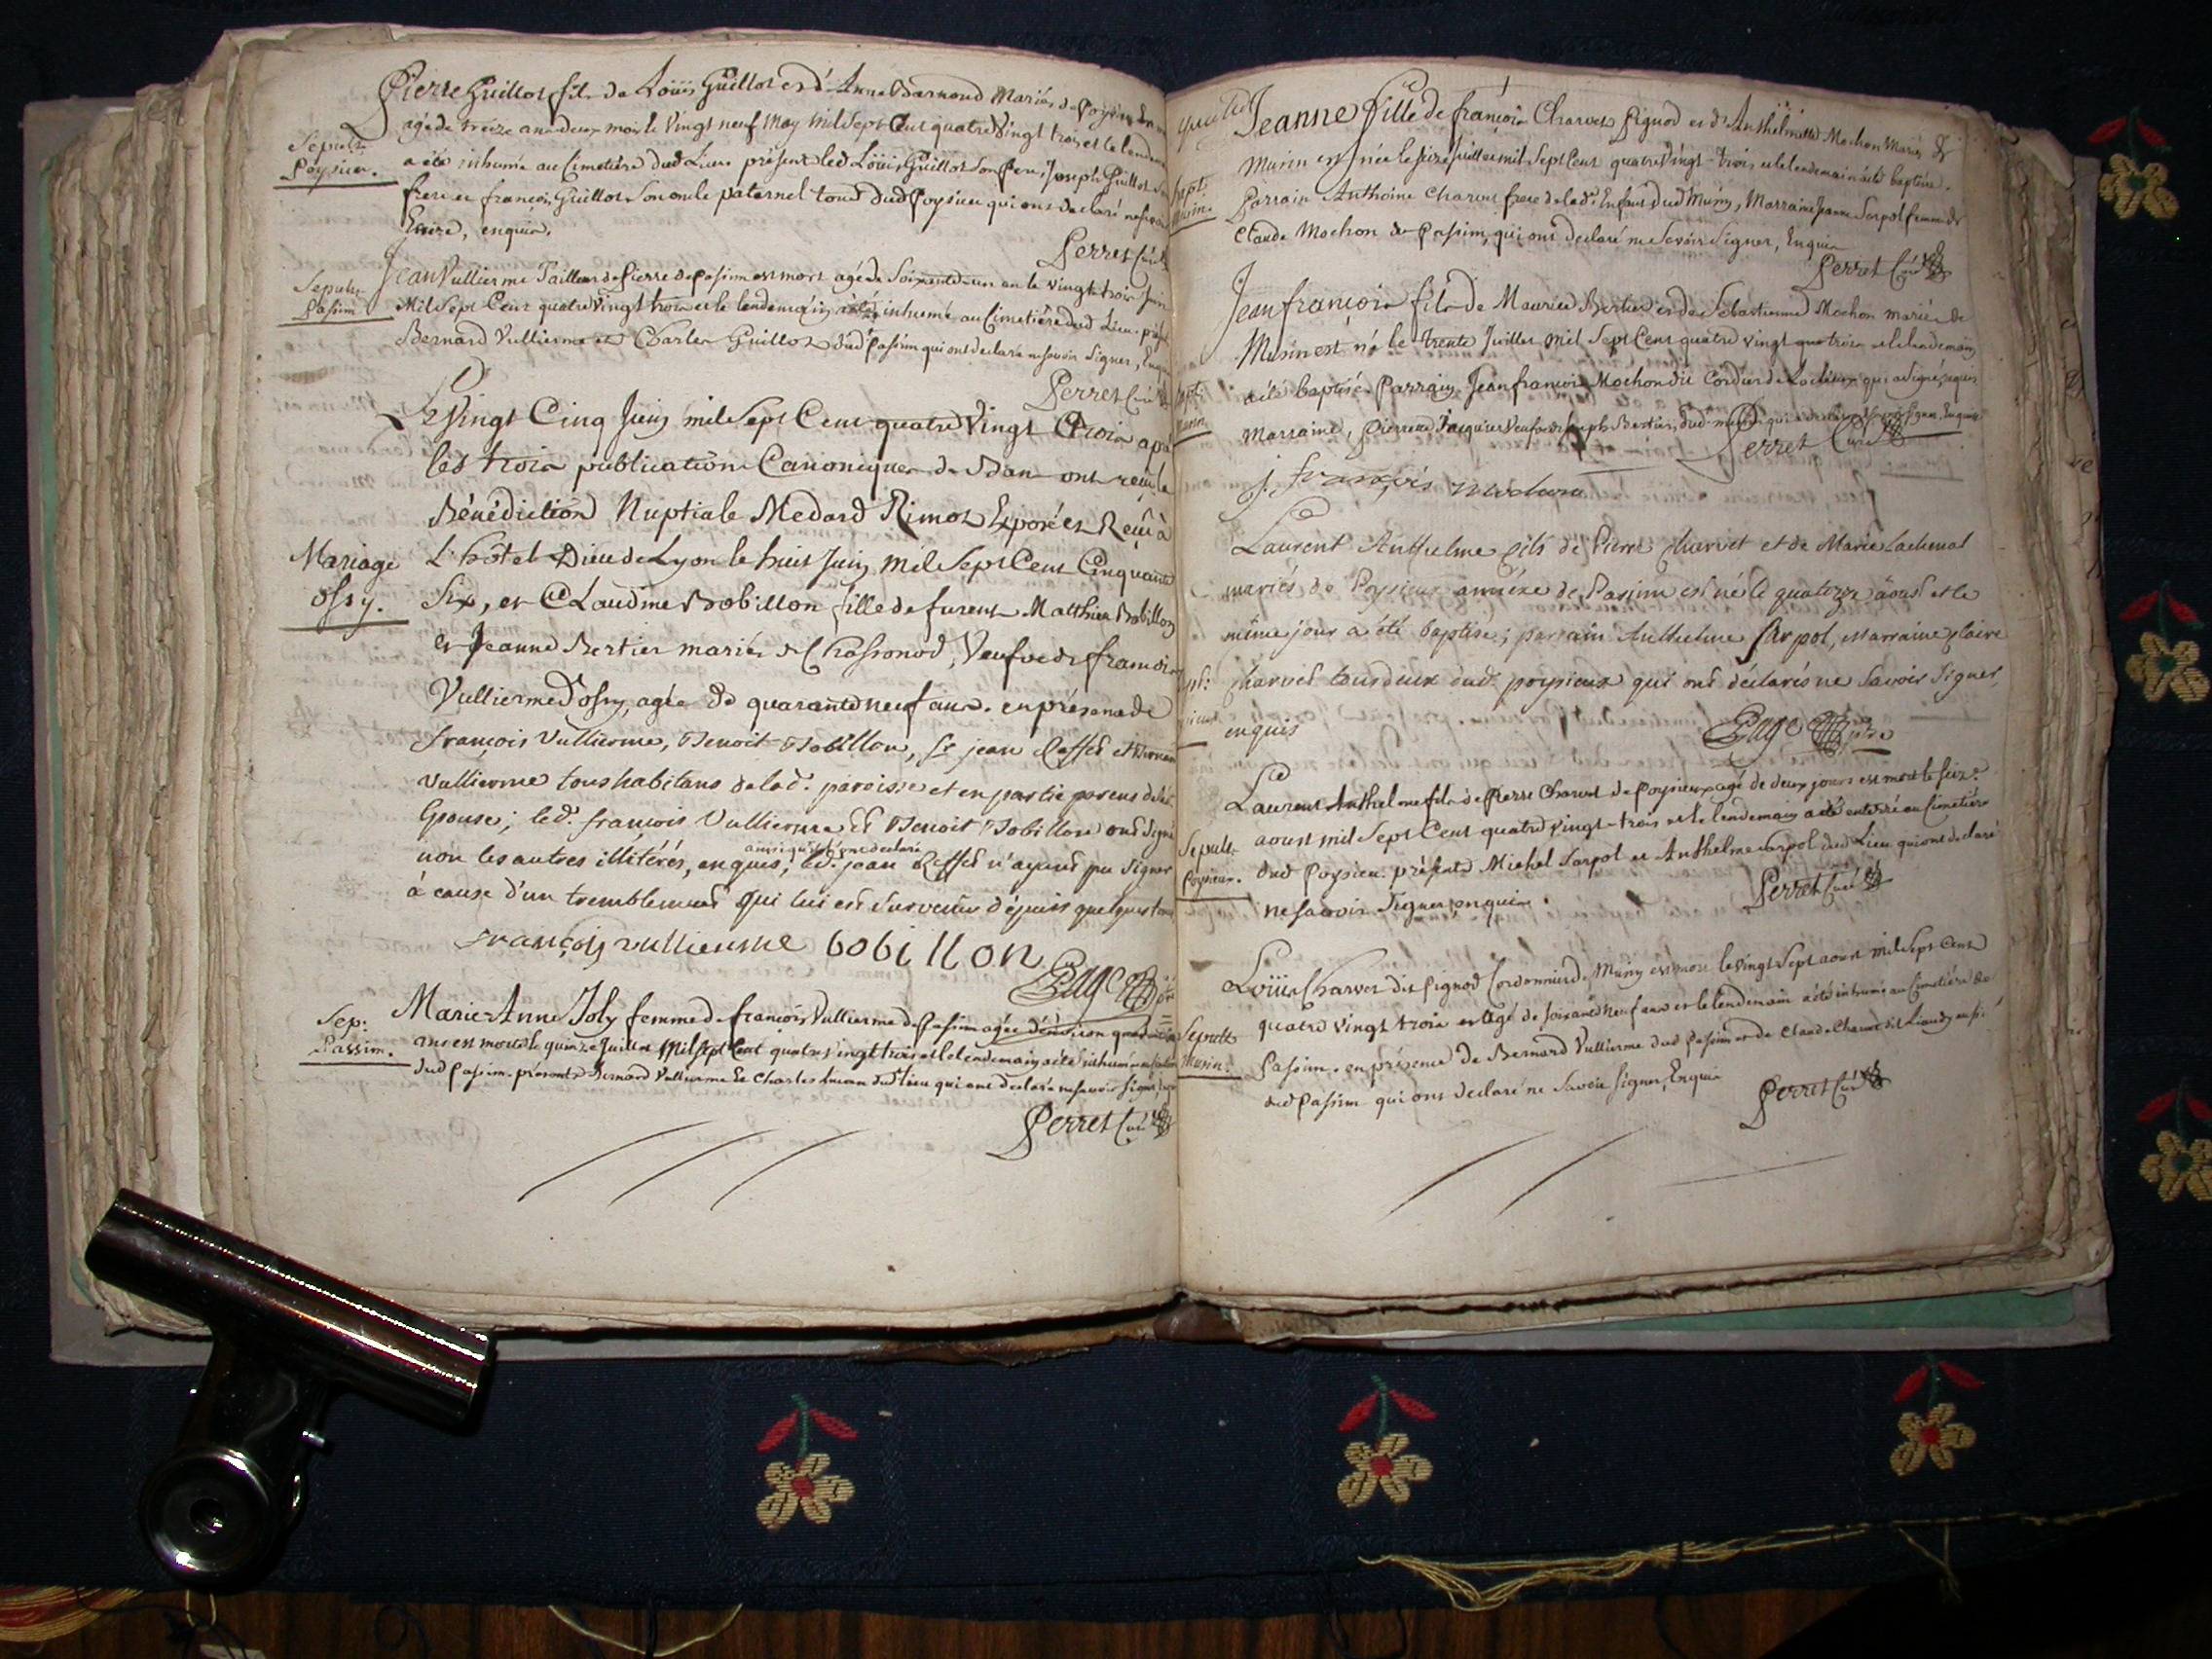 Pierre Guillot fils de Loüis Guillot et d'Anne Barnoud Mariés de Poysieu
agé de treize ans deux mois le vingt neuf May mil Sept Cent quatre Vingt trois et le lendem
Sepult.
Poysieu.
a été inhumé au Cimetiére dud Lieu présent led Loüis Guillot Son Pere, Joseph Guillot
frere et francois Guillot Son oncle paternel tous dud Poysieu qui ont declaré ne
Ecrire, enquis.
Perret Curé
Jean Vullierme Tailleur de Pierre de Passim est mort agé de Soixante un an le vingt trois Juin
Sepult.
Passim
Mil Sept Cent quatre Vingt trois et le lendemain a été inhumé au Cimetiére dud Lieu
Bernard Vullierme et Charles Guillot dud Passim qui ont declaré ne Savoir Signer, Enq
Perret Curé
Le Vingt Cinq Juin mil Sept Cent quatre Vingt Trois apr
les trois publications Canoniques de Ban ont reçu la
Bénédiction Nuptiale Medard Rimot Exposé et Reçu à
Mariage
ossy.
L'hôtel Dieu de Lyon le huit Juin Mil Sept Cent Cinquante
Six, et Claudine Bobillon fille de furent Matthieu Bobillon
et Jeanne Bertier mariés de Chassonod, Veufve de francois
Vullierme d'ossy, agée de quarante neuf ans. en présence de
françois Vullierme, Benoit Bobillon, Sr jean Reffet et
Vullierme tous habitans de lad. paroisse et en partie parens de la
Epouse; led. francois Vullierme et Benoit Bobillon ont Signé
ainsi qu'ils l'ont declaré
non les autres illitérés, enquis, led. jean Reffet n'ayant pu Signer
à cause d'un tremblement qui lui est survenu dépuis quelques tems
françois vullierme bobillon
Page ptre
Marie Anne Joly femme de francois Vullierme de Passim agée d'environ
Sep:
Passim.
ans est morte le quinze Juillet Mil Sept Cent quatre vingt trois et le lendemain a été inhumée au
dud Passim. presents Bernard Vullierme Et Charles dud Lieu qui ont declaré ne Savoir Signer,
Perret Curé
Jeanne fille de françois Charvet Pignod et d'Anthelmette Mochon Mariés de
Musin est née le seize Juillet mil Sept Cent quatre Vingt-trois et le lendemain a été baptisée.
Parrain Anthoine Charvet frere de lad. Enfant dud Musin, Marraine Jeanne Sarpol femme de
Claude Mochon de Passim, qui ont declaré ne Savoir Signer, Enquis
Perret Curé
Jean françois fils de Maurice Bertier et de Sebastienne Mochon mariés de
Musin est né le trente Juillet mil Sept Cent quatre vingt trois et le lendemain
a été baptisé. Parrain Jean francois Mochon dit Cordier de qui a Signé, enquis
Marraine, Pierrette Jacquier Veufve de Joseph Bertier, dud Musin
Perret Curé
j. françois mochon
Laurent Anthelme fils de Pierre Charvet et de Marie Lachenal
mariés de Poysieux annéxe de Passim est né le quatorze aoust et le
même jour a été baptisé; parrain Anthelme Sarpol, marraine Claire
Charvet tous deux dud. poysieux qui ont déclarés ne Savoir Signer,
enquis
Page ptre
Laurent Anthelme fils de Pierre Charvet de Poysieux agé de deux jours est mort le seize
aoust mil Sept Cent quatre vingt-trois et le lendemain a été enterré au Cimetiére
Sepult.
Poysieux.
dud Poysieu. présents Michel Sarpol et Anthelme Sarpol dud Lieu qui ont declaré
ne Savoir Signer, enquis.
Perret Curé
Loüis Charvet dit Pignod Cordonnier de Musin est mort le vingt Sept aoust mil Sept Cent
quatre vingt trois et agé de soixante neuf ans et le lendemain a été inhumé au Cimetiére de
Sepult.
Musin.
Passim. en présence de Bernard Vullierme dud Passim et de Claude Charvet dit aussi
dud Passim qui ont declaré ne Savoir Signer, Enquis
Perret Curé